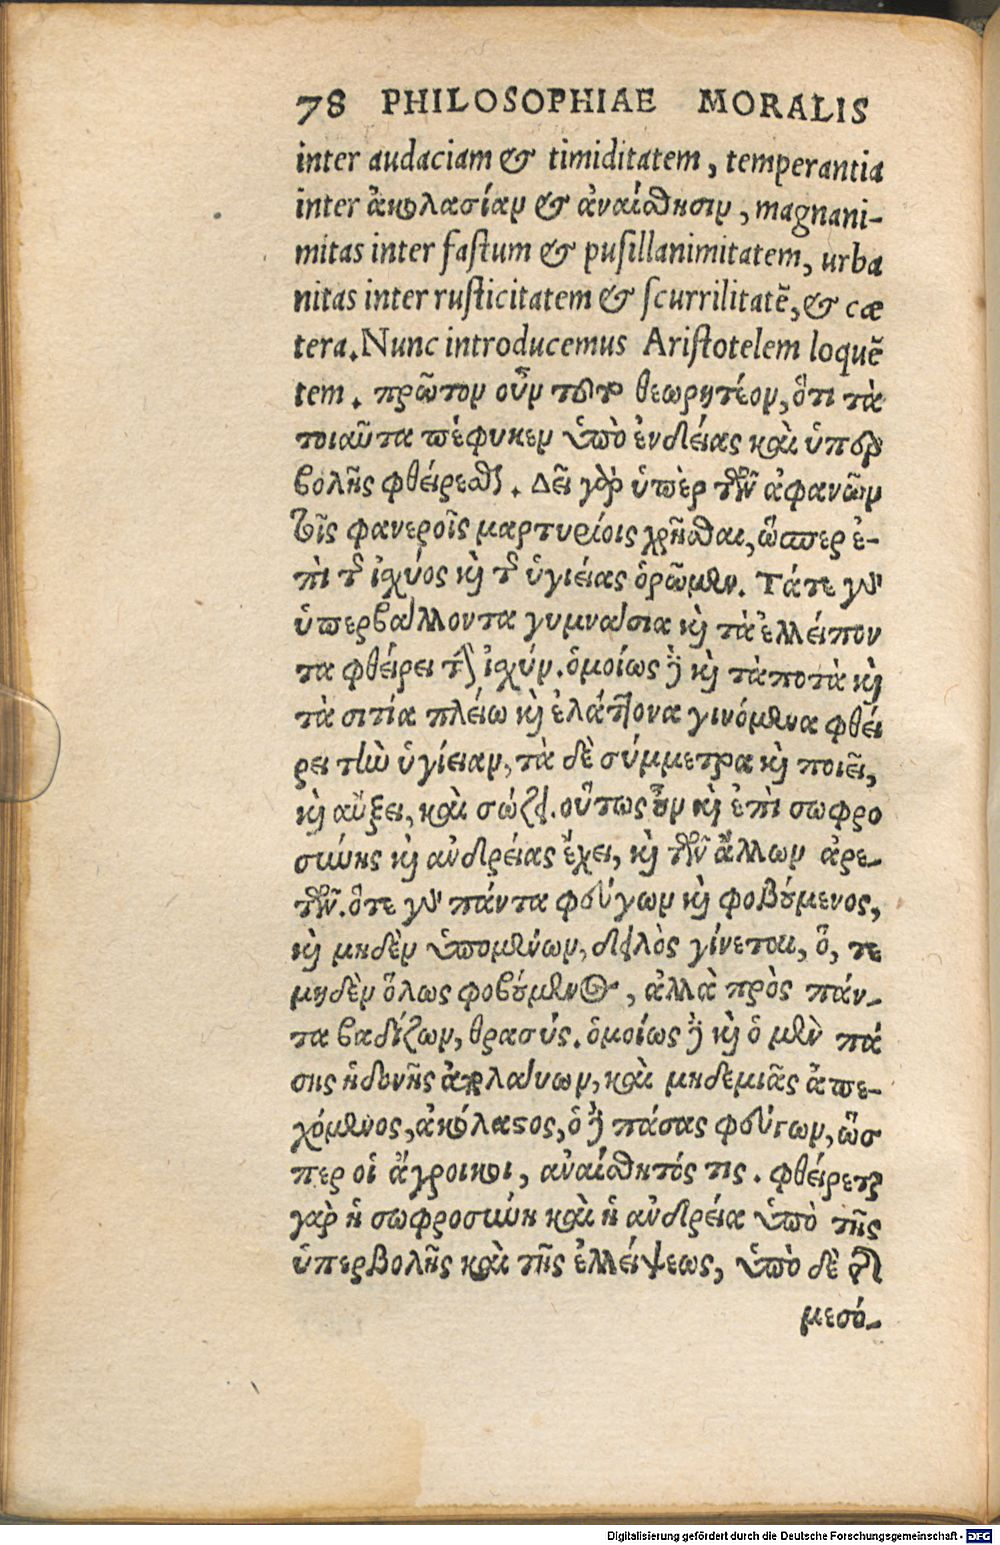 78 PHILOSOPHIAE MORALIS
inter audaciam & timiditatem, temperantia
inter ἀκολασίαν & ἀναίσθησιν, magnani-
mitas inter fastum & pusillanimitatem, urba
nitas inter rusticitatem & scurrilitatẽ, & cæ
tera. Nunc introducemus Aristotelem loquẽ
tem. πρῶτον οὖν τοῦτο θεωρητέον, ὅτι τὰ
τοιαῦτα πέφυκεν ὑπὸ ἐνδείας καὶ ὑπερ
βολῆς φθείρεσθαι. Δεῖ γὰρ ὑπὲρ τῶν ἀφανῶν
τοῖς φανεροῖς μαρτυρίοις χρῆσθαι, ὥσπερ ἐ-
πὶ τῆς ἰσχύος καὶ τῆς ὑγιείας ὁρῶμεν. Τά τε γὰρ
ὑπερβάλλοντα γυμνάσια καὶ τὰ ἐλλείπον
τα φθείρει τὴν ἰσχύν. ὁμοίως δὲ καὶ τὰ ποτὰ καὶ
τὰ σιτία πλείω καὶ ἐλάττονα γινόμενα φθεί
ρει τὴν ὑγίειαν, τὰ δὲ σύμμετρα καὶ ποιεῖ,
καὶ αὔξει, καὶ σώζει. οὕτως οὖν καὶ ἐπὶ σωφρο
σύνης καὶ ἀνδρείας ἔχει, καὶ τῶν ἄλλων ἀρε-
τῶν. ὅτε γὰρ πάντα φεύγων καὶ φοβούμενος,
καὶ μηδὲν ὑπομένων, δειλὸς γίνεται, ὅ, τε
μηδὲν ὅλως φοβούμενος, ἀλλὰ πρὸς πάν-
τα βαδίζων, θρασύς. ὁμοίως δὲ καὶ ὁ μὲν πά
σης ἡδονῆς ἀπολαύων, καὶ μηδεμιᾶς ἀπε-
χόμενος, ἀκόλαστος, ὁ δὲ πάσας φεύγων, ὥσ
περ οἱ ἄγροικοι, ἀναίσθητός τις. φθείρεται
γὰρ ἡ σωφροσύνη καὶ ἡ ἀνδρεία ὑπὸ τῆς
ὑπερβολῆς καὶ τῆς ἐλλείψεως, ὑπὸ δὲ τῆς
μεσό-
Digitalisierung gefördert durch die Deutsche Forschungsgemeinschaft - DFG